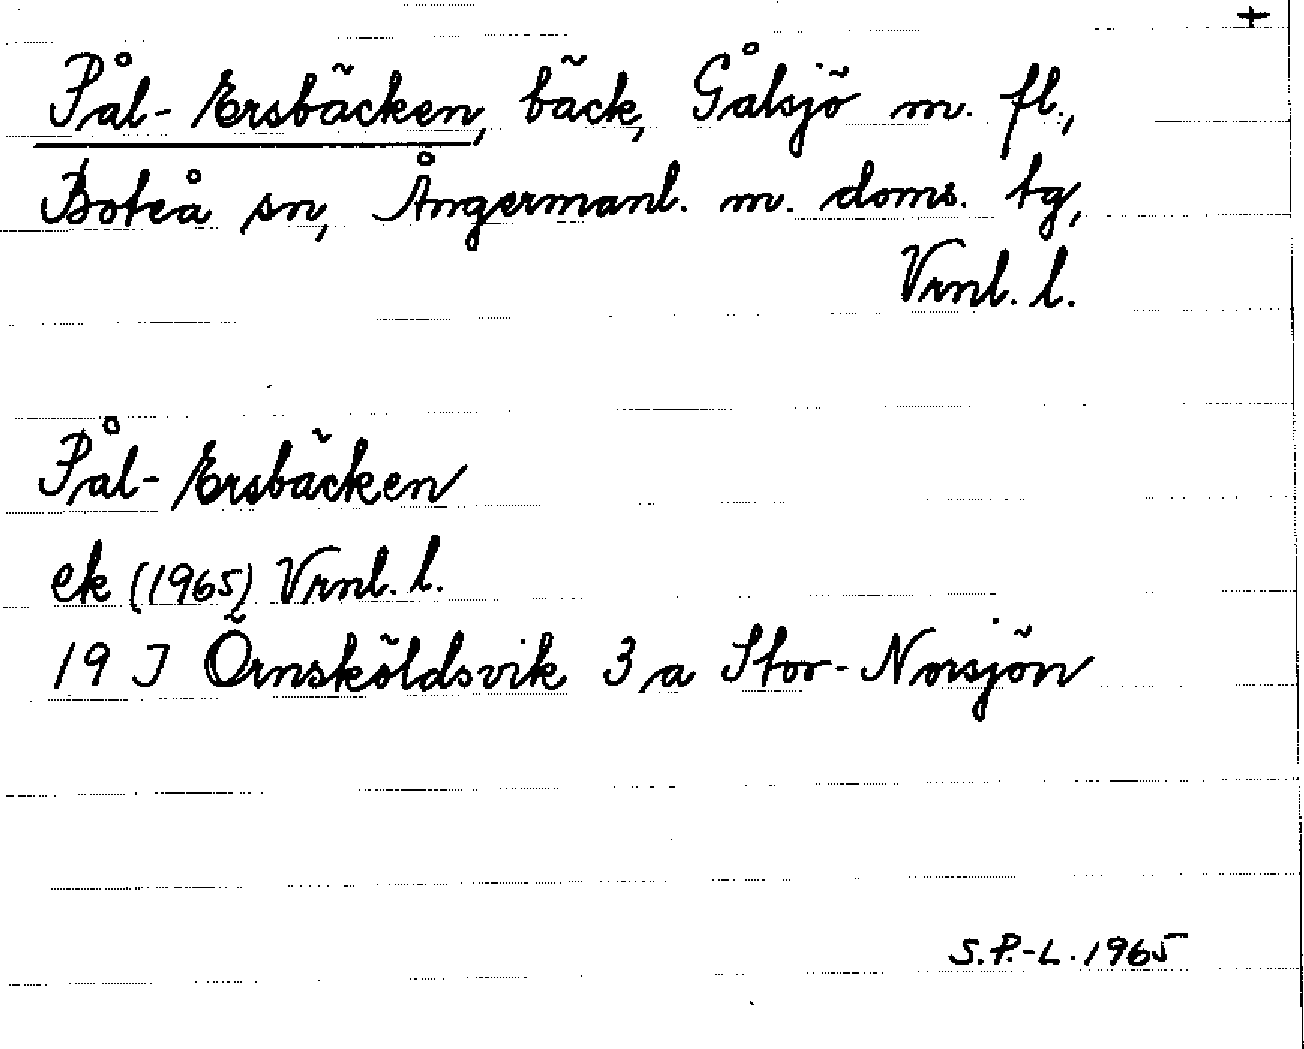 +
Pål-Ersbäcken, bäck, Gålsjö m. fl.,
Boteå sn, Ångermanl. m. doms. tg,
Vrnl. l.
Pål-Ersbäcken
ek (1965) Vrnl. l.
19 J Örnsköldsvik 3 a Stor-Norsjön
S.P.-L. 1965